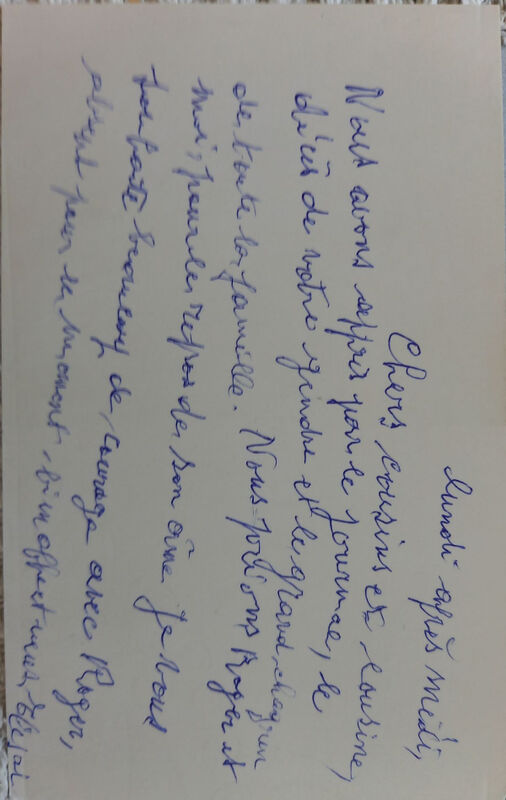 Lundi après midi,
Chers cousins et cousine,
Nous avons appris par le journal, le
décès de votre gendre et le grand chagrin
de toute la famille. Nous prions Roger et
moi, pour le repos de son âme je vous
souhaite beaucoup de courage avec Roger,
pour le moment, bien affectueux,